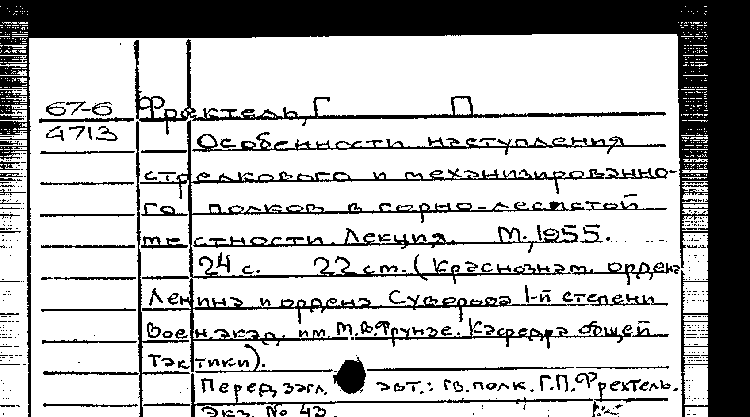 67-6 Фректель, Г П
4713 Особенности наступления
стрелкового и механизированно-
го полков в горно-лесистой
местности. Лекция. М., 1955.
24 с. 22 см. (Краснознам. ордена
Ленина и ордена Суворова 1-й степени
Воен. акад. им. М.В. Фрунзе. Кафедра общей
тактики).
Перед загл. авт.: гв. полк. Г.П. Фректель.
Экз. № 43.